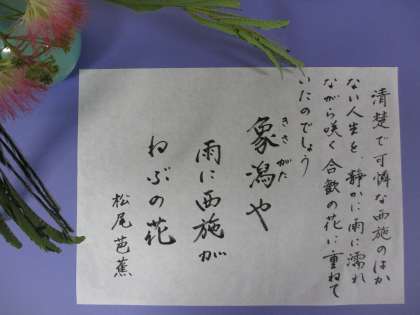 清楚で可憐な西施のはか
ない人生を、静かに雨に濡れ
ながら咲く合歓の花に重ねて
いたのでしょう
象潟や
きさがた
雨に西施が
ねぶの花
松尾芭蕉